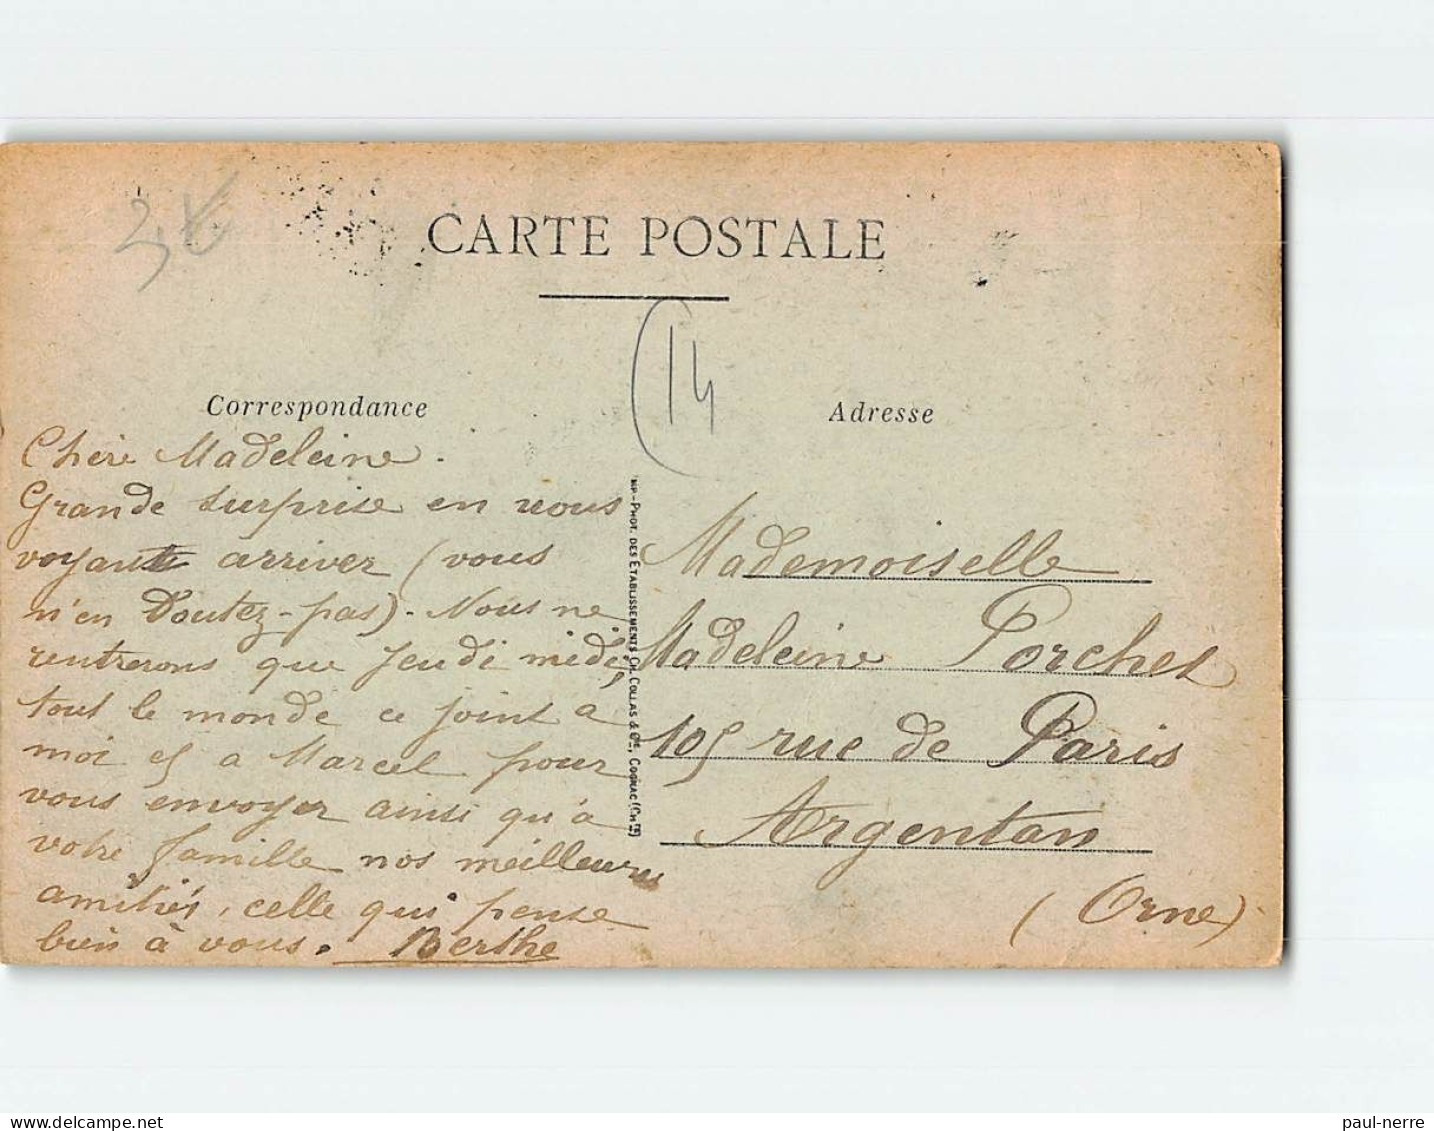 3€
CARTE POSTALE
(14
Correspondance
Adresse
Chère Madeleine.
Grande surprise en nous
voyant arriver (vous
n'en doutez-pas). Nous ne
rentrerons que Jeudi midi,
tout le monde ce joint a
moi et a Marcel pour
vous envoyer ainsi qu'à
votre famille nos meilleures
amitiés, celle qui pense
bien à vous. Berthe
IMP.-PHOT. DES ETABLISSEMENTS CH. COLLAS & Cie, COGNAC (Chte)
Mademoiselle
Madeleine Porchet
105 rue de Paris
Argentan
(Orne)
paul-nerre